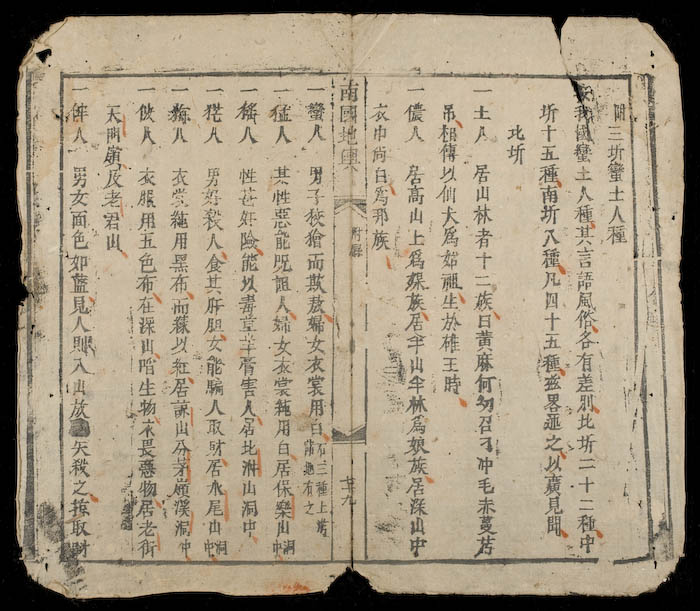 附三圻蠻土人種
我國蠻土人種其言語風俗各有差別北圻二十二種中
圻十五種南圻八種凡四十五種玆畧述之以廣見聞
北圻
一土人 居山林者十二族曰黃麻何召刁冲毛赤蔓苦
吊相傳以仙犬爲始祖生於雄王時
一儂人 居高山上爲猱族居半山半林爲娘族居深山中
衣巾尚白爲那族
南國地輿 附錄 廿九
一蠻人 男子狡獪而欺敖婦女衣裳用白 右三種上游諸地有之
一猛人 其性惡能呪詛人婦女衣裳純用白居保樂山洞中
一猺人 性甚奸險能以毒草辛膏害人居北山洞中
一狫人 男好殺人食其肝胆女能騙人取財居水尾山洞中
一人 衣裳純用黑布而緣以紅居諒山分茅嶺溪洞中
一人 衣服用五色布在深山啗生物不畏惡物居老街
天門嶺反老君山
一俾人 男女面色如藍見人則入山放矢殺之掠取財